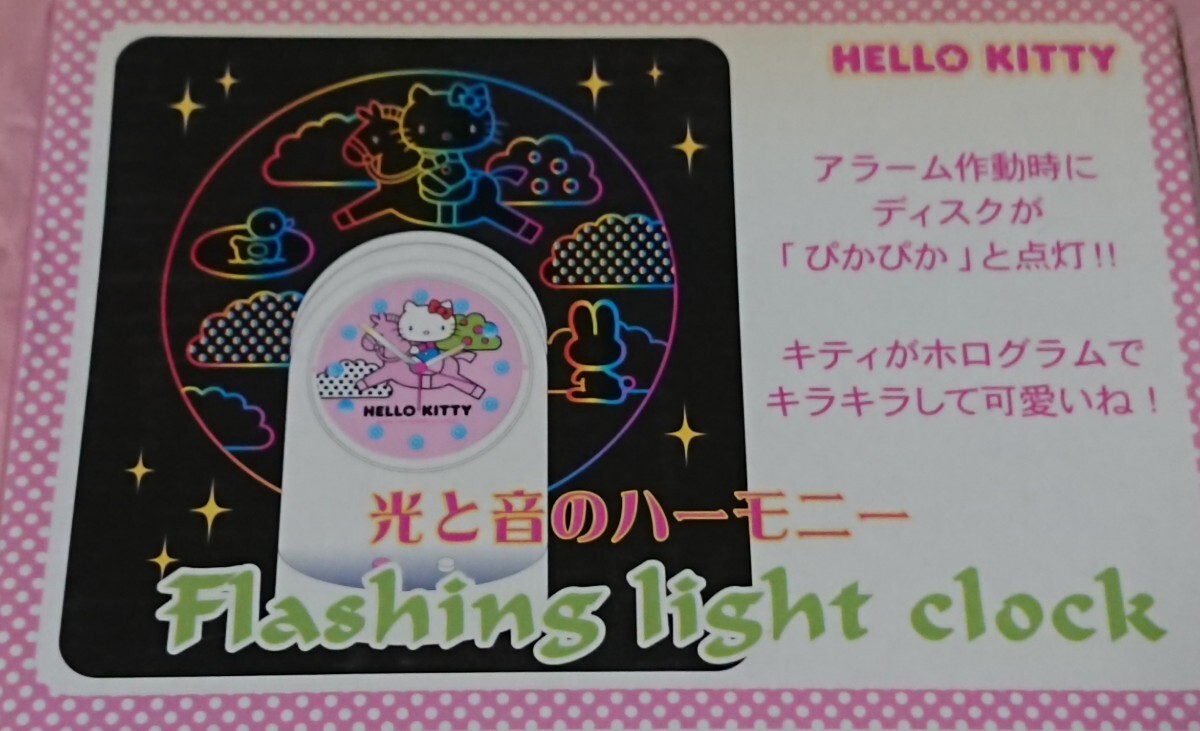 HELLO KITTY
アラーム作動時に
ディスクが
「ぴかぴか」と点灯!!
キティがホログラムで
キラキラして可愛いね！
HELLO KITTY
光と音のハーモニー
Flashing light clock